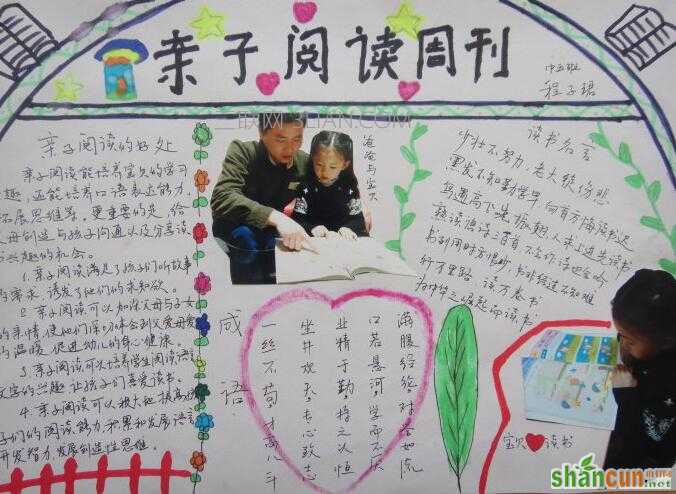 亲子阅读周刊
中五班
程子珺
亲子阅读的好处
亲子阅读能培养宝贝的学习
趣,还能培养口语表达能力,
拓展思维等,更重要的是,给
父母创造与孩子沟通以及分享读
兴趣的机会。
1.亲子阅读满足了孩子们听故事
的需求,诱发了他们的求知欲。
2.亲子阅读可以加深父母与子女
的亲情,使他们深切体会到父爱母爱
的温暖,促进幼儿的身心健康。
3.亲子阅读可以培养学生阅读
文字的兴趣,让孩子们喜爱读书。
4.亲子阅读可以极大地提高孩
子们的阅读能力,积累和发展语言
开发智力,发展创造性思维。
爸爸与宝贝
成语
满腹经纶,对答如流
口若悬河,学而不厌
业精于勤,持之以恒
坐井观天,专心致志
一丝不苟,才高八斗
读书名言
少壮不努力,老大徒伤悲
黑发不知勤学早,白首方悔读书迟
熟读唐诗三百首,不会作诗也会吟
书到用时方恨少,事非经过不知难
行万里路,读万卷书
为中华之崛起而读书
宝贝 读书
三联网 3LIAN.COM
shancun
.net